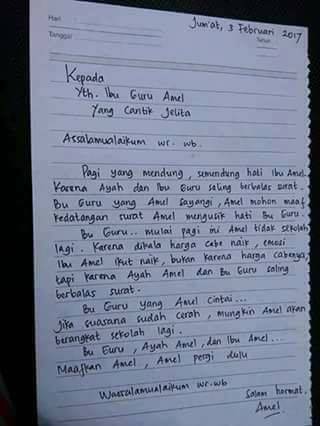 Hari
Tanggal
Jum'at, 3 Februari 2017
Kepada
Yth. Ibu Guru Amel
Yang Cantik Jelita
Assalamualaikum wr. wb.
Pagi yang mendung, semendung hati Ibu Amel
Karena Ayah dan Ibu Guru saling berbalas surat.
Bu Guru yang Amel sayangi, Amel mohon maaf
kedatangan surat Amel mengusik hati Bu Guru.
Bu Guru.. mulai pagi ini Amel tidak sekolah
lagi. Karena dikala harga cabe naik, emosi
Ibu Amel ikut naik, bukan karena harga cabenya,
tapi karena Ayah Amel dan Bu Guru saling
berbalas surat.
Bu Guru yang Amel cintai...
Jika suasana sudah cerah, mungkin Amel akan
berangkat sekolah lagi.
Bu Guru, Ayah Amel, dan Ibu Amel...
Maafkan Amel, Amel pergi dulu
Waassalamualaikum wr.wb
Salam hormat.
Amel